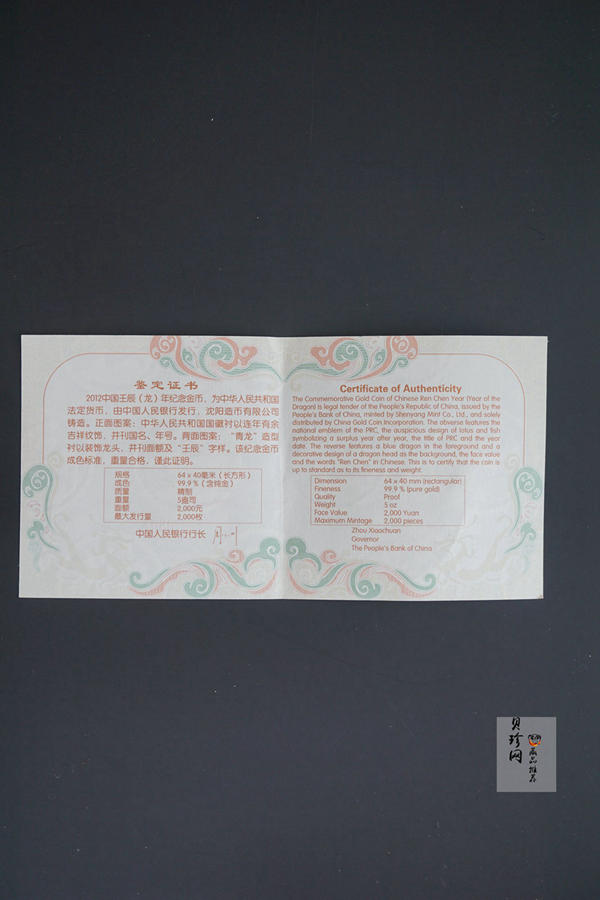 鉴定证书
2012中国壬辰（龙）年纪念金币，为中华人民共和国
法定货币，由中国人民银行发行，沈阳造币有限公司
铸造。正面图案：中华人民共和国国徽衬以连年有余
吉祥纹饰，并刊国名、年号。背面图案：“青龙”造型
衬以装饰龙头，并刊面额及“壬辰”字样。该纪念金币
成色标准，重量合格，谨此证明。
规格 64×40毫米（长方形）
成色 99.9％（含纯金）
质量 精制
重量 5盎司
面额 2,000元
最大发行量 2,000枚
中国人民银行行长
Certificate of Authenticity
The Commemorative Gold Coin of Chinese Ren Chen Year (Year of the
Dragon) is legal tender of the People's Republic of China, issued by the
People's Bank of China, minted by Shenyang Mint Co., Ltd., and solely
distributed by China Gold Coin Incorporation. The obverse features the
national emblem of the PRC, the auspicious design of lotus and fish
symbolizing a surplus year after year, the title of PRC and the year
date. The reverse features a blue dragon in the foreground and a
decorative design of a dragon head as the background, the face value
and the words "Ren Chen" in Chinese. This is to certify that the coin is
up to standard as to its fineness and weight.
Dimension 64 x 40 mm (rectangular)
Fineness 99.9 % (pure gold)
Quality Proof
Weight 5 oz
Face Value 2,000 Yuan
Maximum Mintage 2,000 pieces
Zhou Xiaochuan
Governor
The People's Bank of China
贝珍网
藏品推荐